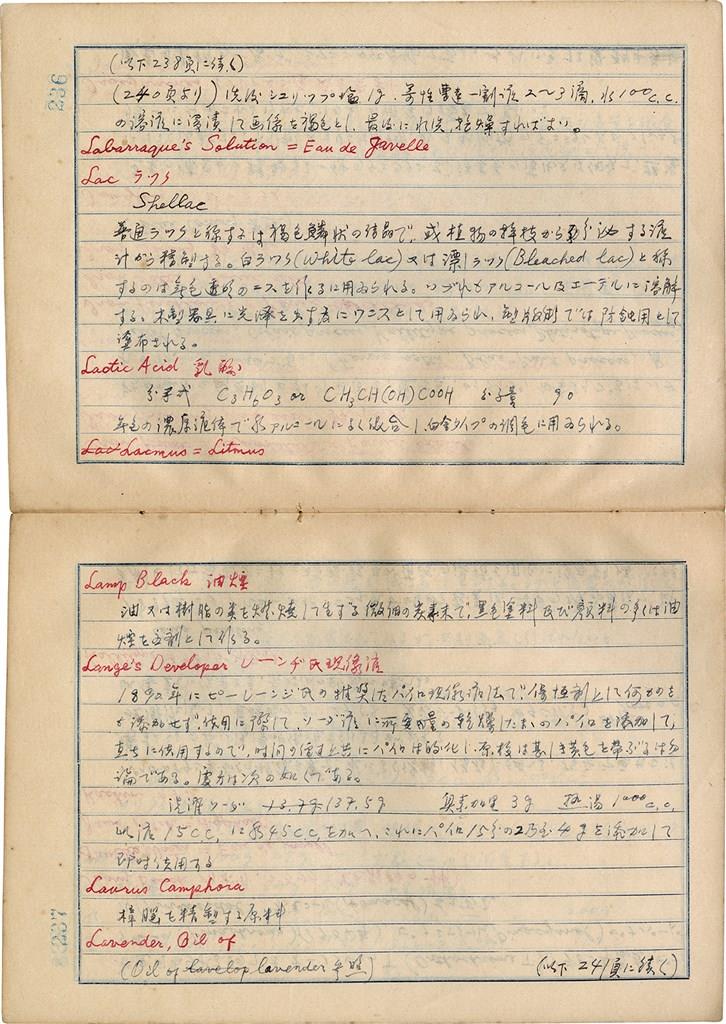 236
(以下238頁に続く)
(240頁より) 洗後シュリップ塩1g、苛性曹達一割液2〜3滴、水100c.c.
の溶液に浸漬して画像を褐色とし、最後に水洗、乾燥すればよい。
Labarraque's Solution = Eau de Javelle
Lac ラック
Shellac
普通ラックと称するは褐色鱗状の結晶で、或植物の幹枝から分泌する液
汁から精製する。白ラック(White lac)又は漂ラック(Bleached lac)と称
するのは無色透明のニスを作るに用ゐられる。いづれもアルコール及エーテルに溶解
する。木製器具に光澤を出す為にワニスとして用ゐられ、製版術では防蝕用として
塗布される。
Lactic Acid 乳酸
分子式 C3H6O3 or CH3CH(OH)COOH 分子量 90
無色の濃厚液体で水アルコールによく混合し、白金タイプの調色に用ゐられる。
Lac Lacmus = Litmus
Lamp Black 油煙
油又は樹脂の類を燃焼して生ずる微細の炭素末で、黒色塗料及び顔料の多くは油
煙を主剤として作る。
Lange's Developer レーンヂ氏現像液
1892年にピーレーンジ氏の推奨したパイロ現像液法で、保恒剤として何ものを
も添加せず、使用に際して、ソーダ液に所要量の乾燥したまゝのパイロを添加して、
直ちに使用するので、時間の経過と共にパイロは酸化し、液は甚しき黄色を帯ぶるは勿
論である。處方は次の如くである。
洗濯ソーダ 13.75 137.5g 臭素加里 3g 熱湯 1000c.c.
此液15c.c.に水45c.c.を加へ、これにパイロ15分の2乃至4gを添加して
即時使用する
Laurus Camphora
樟脳を精製する原料
Lavender, Oil of
(Oil of lavelop lavender 参照) (以下241頁に続く)
237